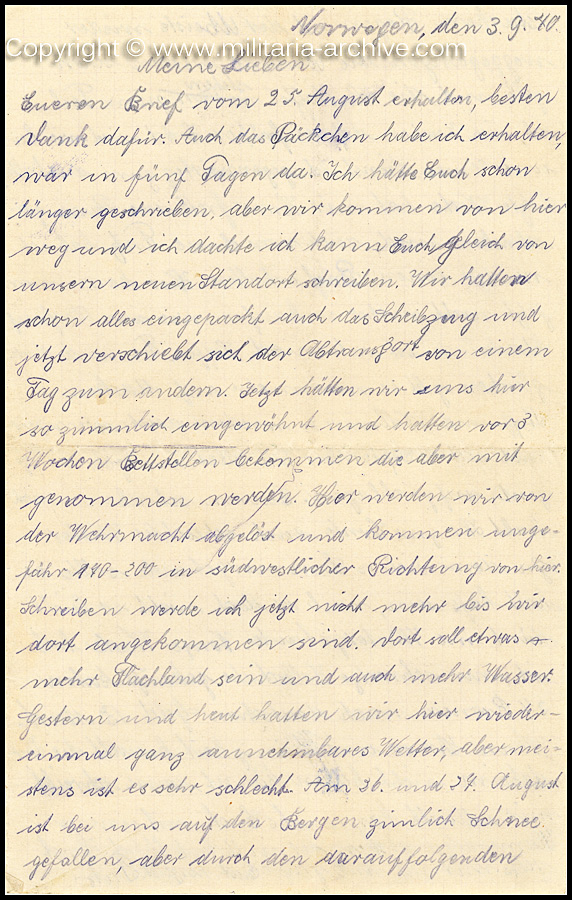 Copyright © www.militaria-archive.com
Norwegen, den 3.9.40.
Meine Lieben
Eueren Brief vom 25. August erhalten, besten
Dank dafür. Auch das Päckchen habe ich erhalten,
war in fünf Tagen da. Ich hätte Euch schon
länger geschrieben, aber wir kommen von hier
weg und ich dachte ich kann Euch geleich von
unsern neuen Standort schreiben. Wir hatten
schon alles eingepackt auch das Scheibzeug und
jetzt verschiebt sich der Abtransport von einem
Tag zum andern. Jetzt hätten wir uns hier
so zimmlich eingewöhnt und hatten vor 3
Wochen Bettstellen bekommen die aber mit
genommen werden. Hier werden wir von
der Wehrmacht abgelöst und kommen unge-
fähr 170-200 in südwestlicher Richtung von hier.
Schreiben werde ich jetzt nicht mehr bis wir
dort angekommen sind. Dort soll etwas
mehr Flachland sein und auch mehr Wasser.
Gestern und heut hatten wir hier wieder-
einmal ganz annehmbares Wetter, aber mei-
stens ist es sehr schlecht. Am 26. und 27. August
ist bei uns auf den Bergen zimlich Schnee
gefallen, aber durch den darauffolgenden